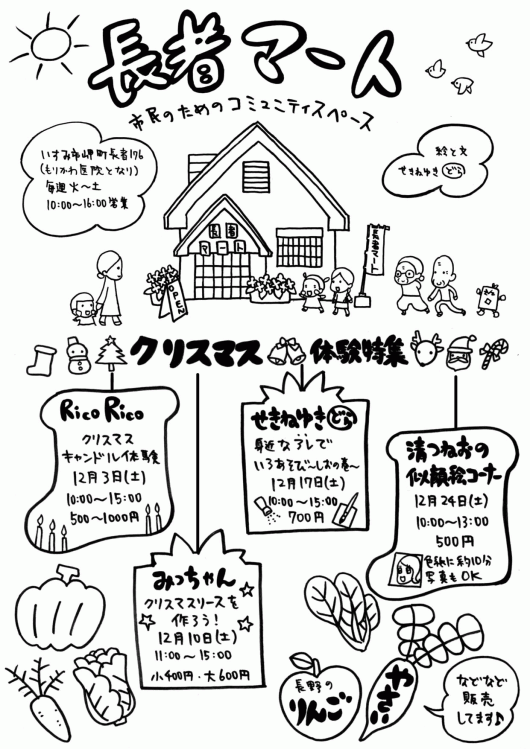 長者マート
市民のためのコミュニティスペース
いすみ市岬町長者176
(もりかわ医院となり)
毎週火～土
10:00～16:00営業
絵と文
せきねゆき どら
長者
マート
OPEN
長者マート
クリスマス 体験特集
Rico Rico
クリスマス
キャンドル体験
12月3日(土)
10:00～15:00
500～1000円
せきねゆき どら
身近なアレで
いろあそび～しおの巻～
12月17日(土)
10:00～15:00
700円
清つねおの
似顔絵コーナー
12月24日(土)
10:00～13:00
500円
色紙に約10分
写真もOK
みっちゃん
クリスマスリースを
作ろう!
12月10日(土)
11:00～15:00
小400円・大600円
長野の
りんご
やさい
などなど
販売
してます♪